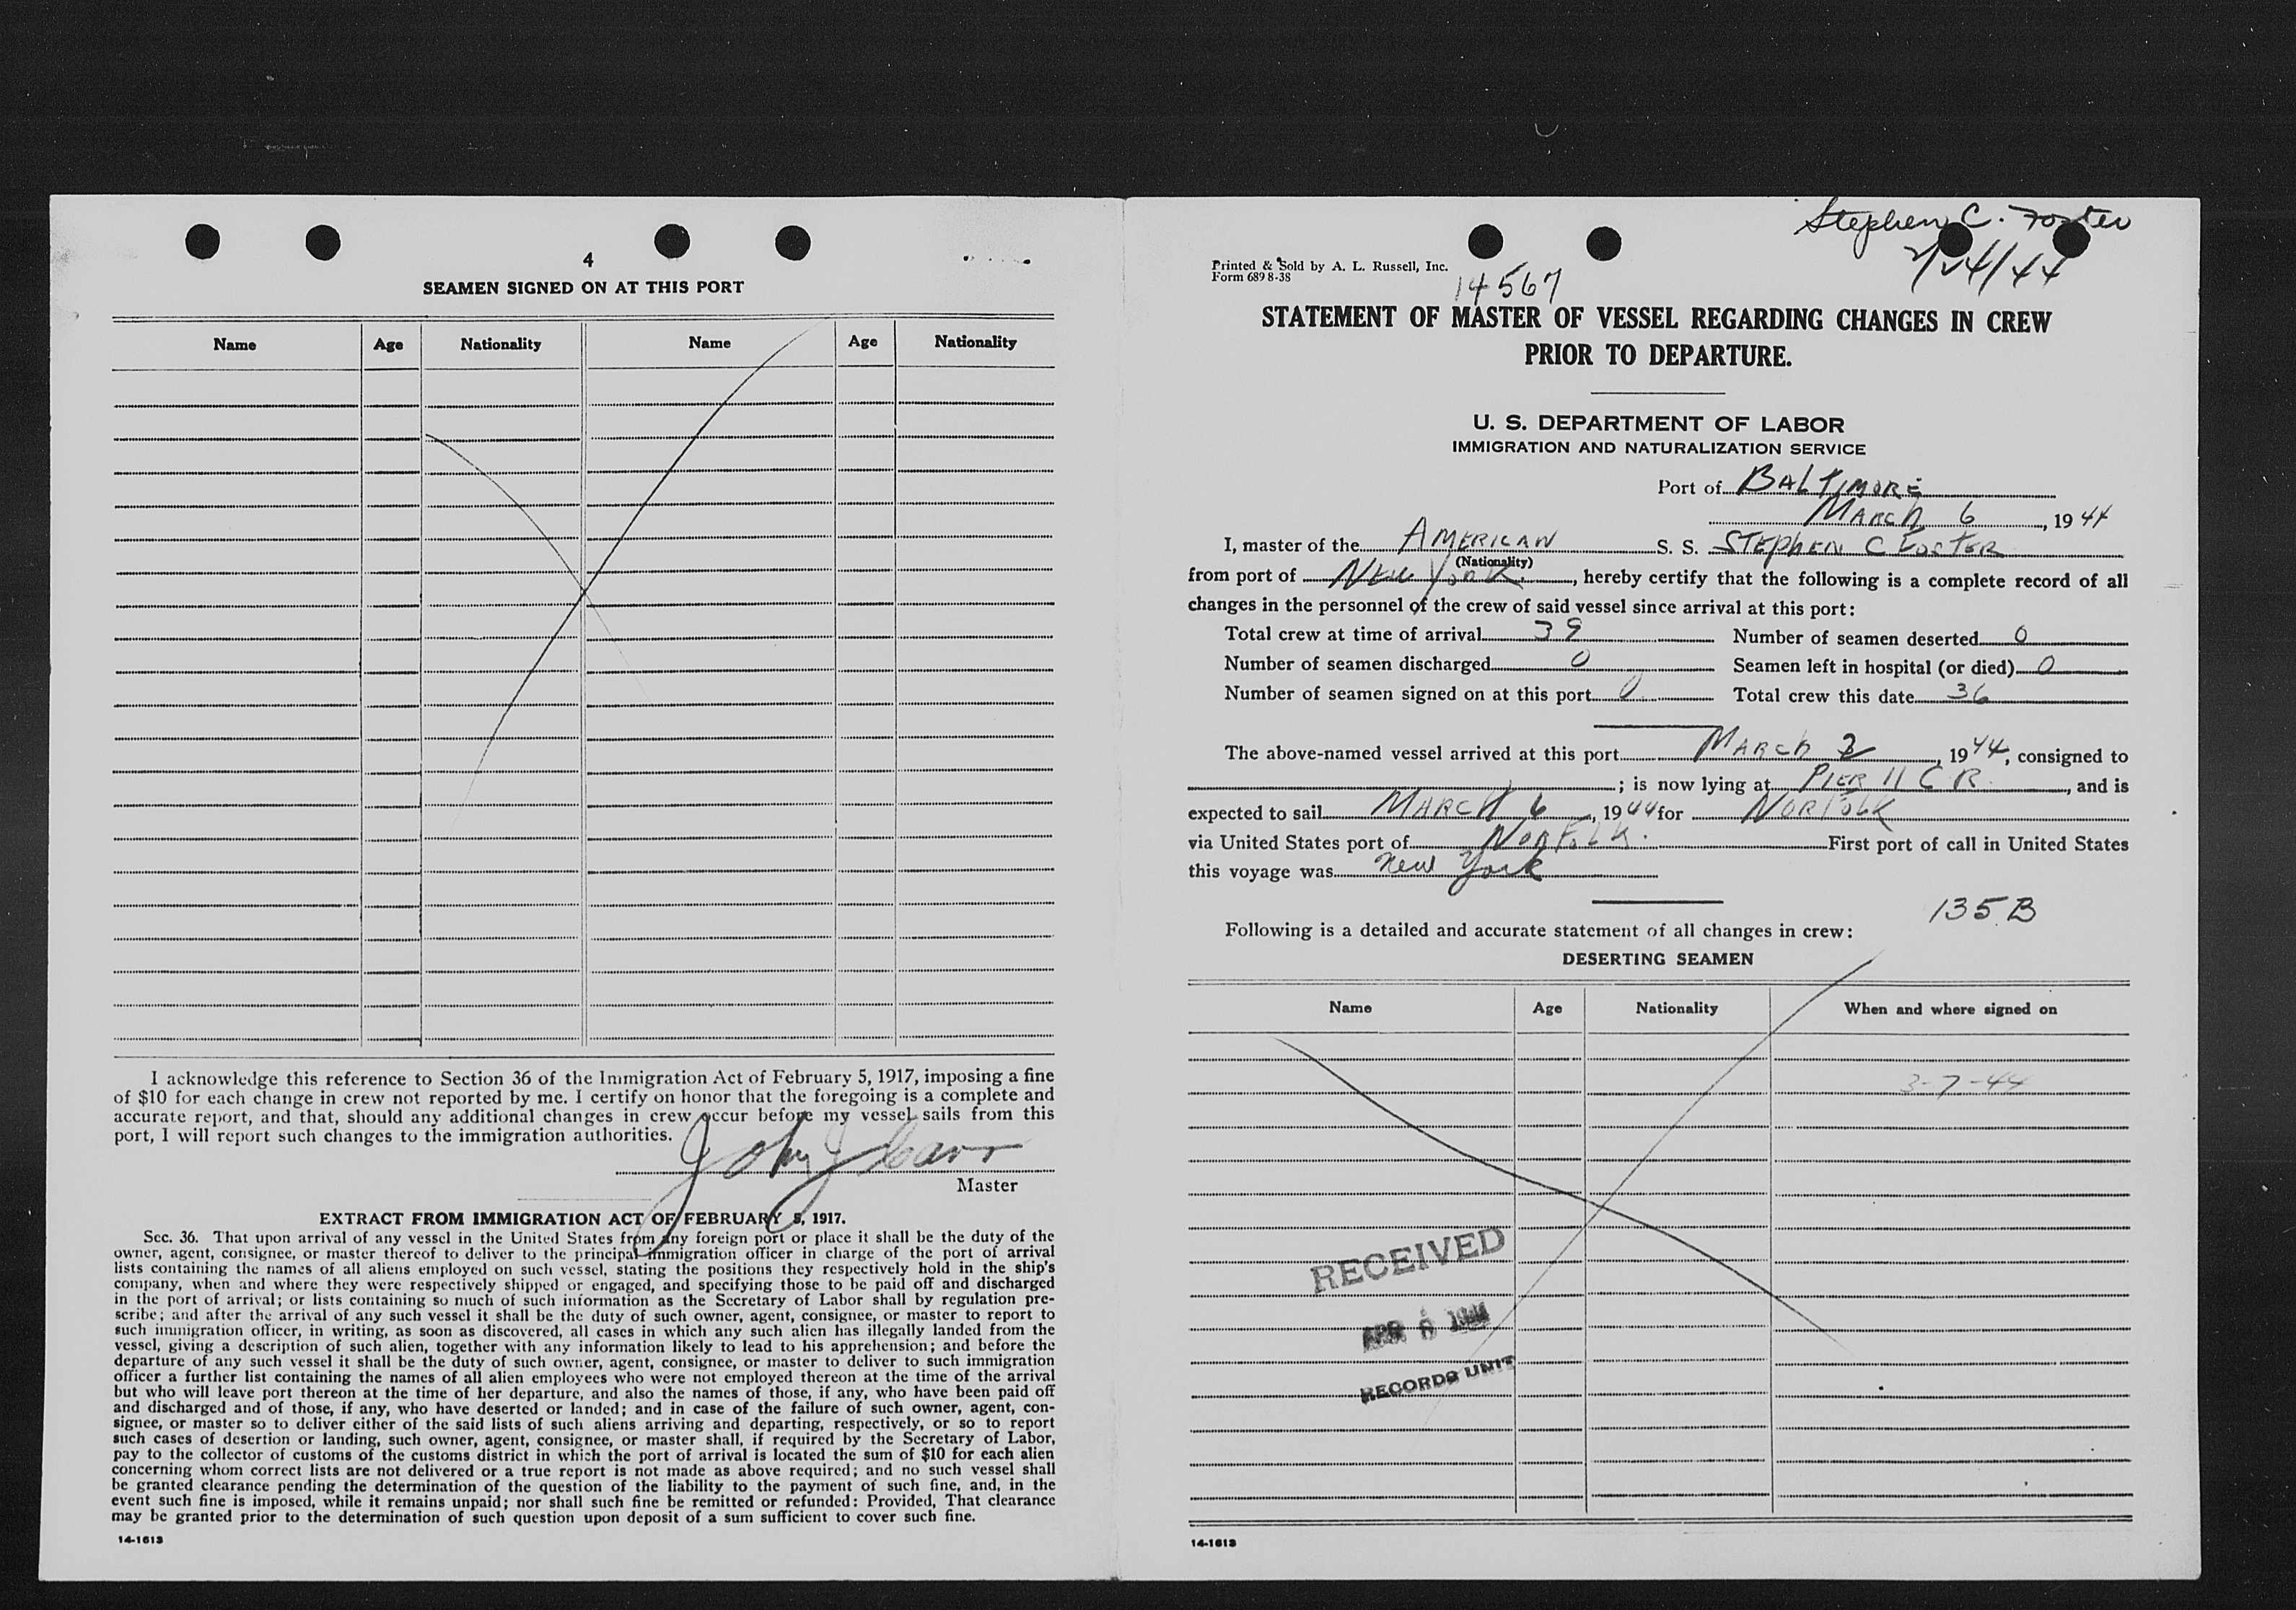 4
SEAMEN SIGNED ON AT THIS PORT
Name Age Nationality Name Age Nationality
I acknowledge this reference to Section 36 of the Immigration Act of February 5, 1917, imposing a fine
of $10 for each change in crew not reported by me. I certify on honor that the foregoing is a complete and
accurate report, and that, should any additional changes in crew occur before my vessel sails from this
port, I will report such changes to the immigration authorities.
John J Carr
Master
EXTRACT FROM IMMIGRATION ACT OF FEBRUARY 5, 1917.
Sec. 36. That upon arrival of any vessel in the United States from any foreign port or place it shall be the duty of the
owner, agent, consignee, or master thereof to deliver to the principal immigration officer in charge of the port of arrival
lists containing the names of all aliens employed on such vessel, stating the positions they respectively hold in the ship's
company, when and where they were respectively shipped or engaged, and specifying those to be paid off and discharged
in the port of arrival; or lists containing so much of such information as the Secretary of Labor shall by regulation pre-
scribe; and after the arrival of any such vessel it shall be the duty of such owner, agent, consignee, or master to report to
such immigration officer, in writing, as soon as discovered, all cases in which any such alien has illegally landed from the
vessel, giving a description of such alien, together with any information likely to lead to his apprehension; and before the
departure of any such vessel it shall be the duty of such owner, agent, consignee, or master to deliver to such immigration
officer a further list containing the names of all alien employees who were not employed thereon at the time of the arrival
but who will leave port thereon at the time of her departure, and also the names of those, if any, who have been paid off
and discharged and of those, if any, who have deserted or landed; and in case of the failure of such owner, agent, con-
signee, or master so to deliver either of the said lists of such aliens arriving and departing, respectively, or so to report
such cases of desertion or landing, such owner, agent, consignee, or master shall, if required by the Secretary of Labor,
pay to the collector of customs of the customs district in which the port of arrival is located the sum of $10 for each alien
concerning whom correct lists are not delivered or a true report is not made as above required; and no such vessel shall
be granted clearance pending the determination of the question of the liability to the payment of such fine, and, in the
event such fine is imposed, while it remains unpaid; nor shall such fine be remitted or refunded: Provided, That clearance
may be granted prior to the determination of such question upon deposit of a sum sufficient to cover such fine.
14-1613
Stephen C. Foster
2/24/44
Printed & Sold by A. L. Russell, Inc.
Form 689 8-38
14567
STATEMENT OF MASTER OF VESSEL REGARDING CHANGES IN CREW
PRIOR TO DEPARTURE.
U. S. DEPARTMENT OF LABOR
IMMIGRATION AND NATURALIZATION SERVICE
Port of BALTIMORE
MARCH 6, 1944
I, master of the AMERICAN S. S. STEPHEN C FOSTER
(Nationality)
from port of New York, hereby certify that the following is a complete record of all
changes in the personnel of the crew of said vessel since arrival at this port:
Total crew at time of arrival 39 Number of seamen deserted 0
Number of seamen discharged 0 Seamen left in hospital (or died) 0
Number of seamen signed on at this port 0 Total crew this date 36
The above-named vessel arrived at this port MARCH 2, 1944, consigned to
; is now lying at PIER 11 C R, and is
expected to sail MARCH 6, 1944 for NORFOLK
via United States port of NORFOLK. First port of call in United States
this voyage was New York
135 B
Following is a detailed and accurate statement of all changes in crew:
DESERTING SEAMEN
Name Age Nationality When and where signed on
3-7-44
RECEIVED
APR 8 1944
RECORDS UNIT
14-1613